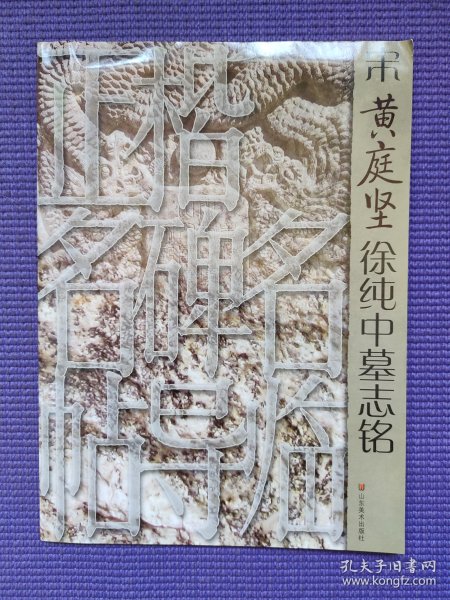 正楷
名碑名
帖导临
宋 黄庭坚 徐纯中墓志铭
山东美术出版社
孔夫子旧书网
www.kongfz.com